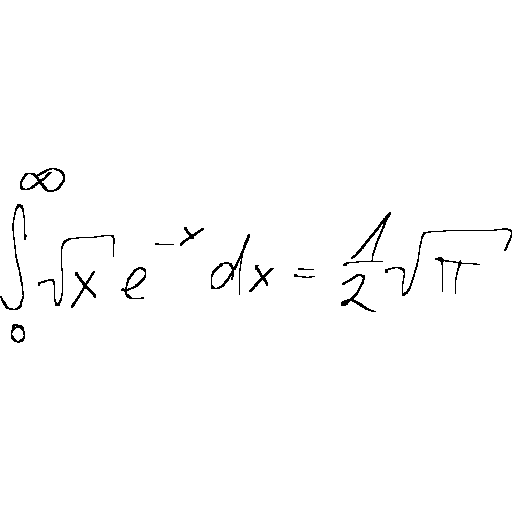 \int_0^\infty \sqrt{x} e^{-x} dx = \frac{1}{2} \sqrt{\pi}